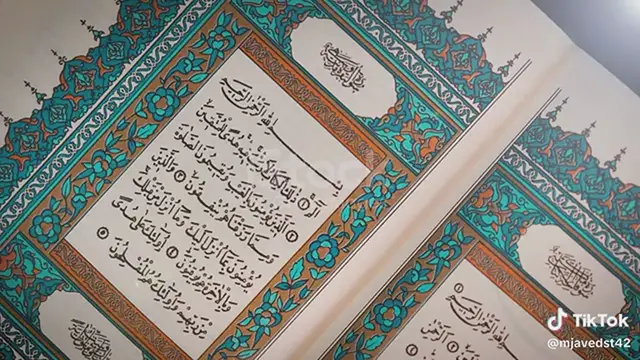 بِسْمِ اللَّهِ الرَّحْمَٰنِ الرَّحِيمِ
الٓمٓ ١ ذَٰلِكَ الْكِتَابُ لَا رَيْبَ فِيهِ هُدًى لِلْمُتَّقِينَ
٢ الَّذِينَ يُؤْمِنُونَ بِالْغَيْبِ وَيُقِيمُونَ الصَّلَاةَ
وَمِمَّا رَزَقْنَاهُمْ يُنْفِقُونَ ٣ وَالَّذِينَ
يُؤْمِنُونَ بِمَا أُنْزِلَ إِلَيْكَ وَمَا أُنْزِلَ مِنْ قَبْلِكَ
وَبِالْآخِرَةِ هُمْ يُوقِنُونَ ٤ أُولَٰئِكَ عَلَىٰ هُدًى
مِنْ رَبِّهِمْ وَأُولَٰئِكَ هُمُ الْمُفْلِحُونَ ٥
بِسْمِ اللَّهِ الرَّحْمَٰنِ الرَّحِيمِ
TikTok
@mjavedst42